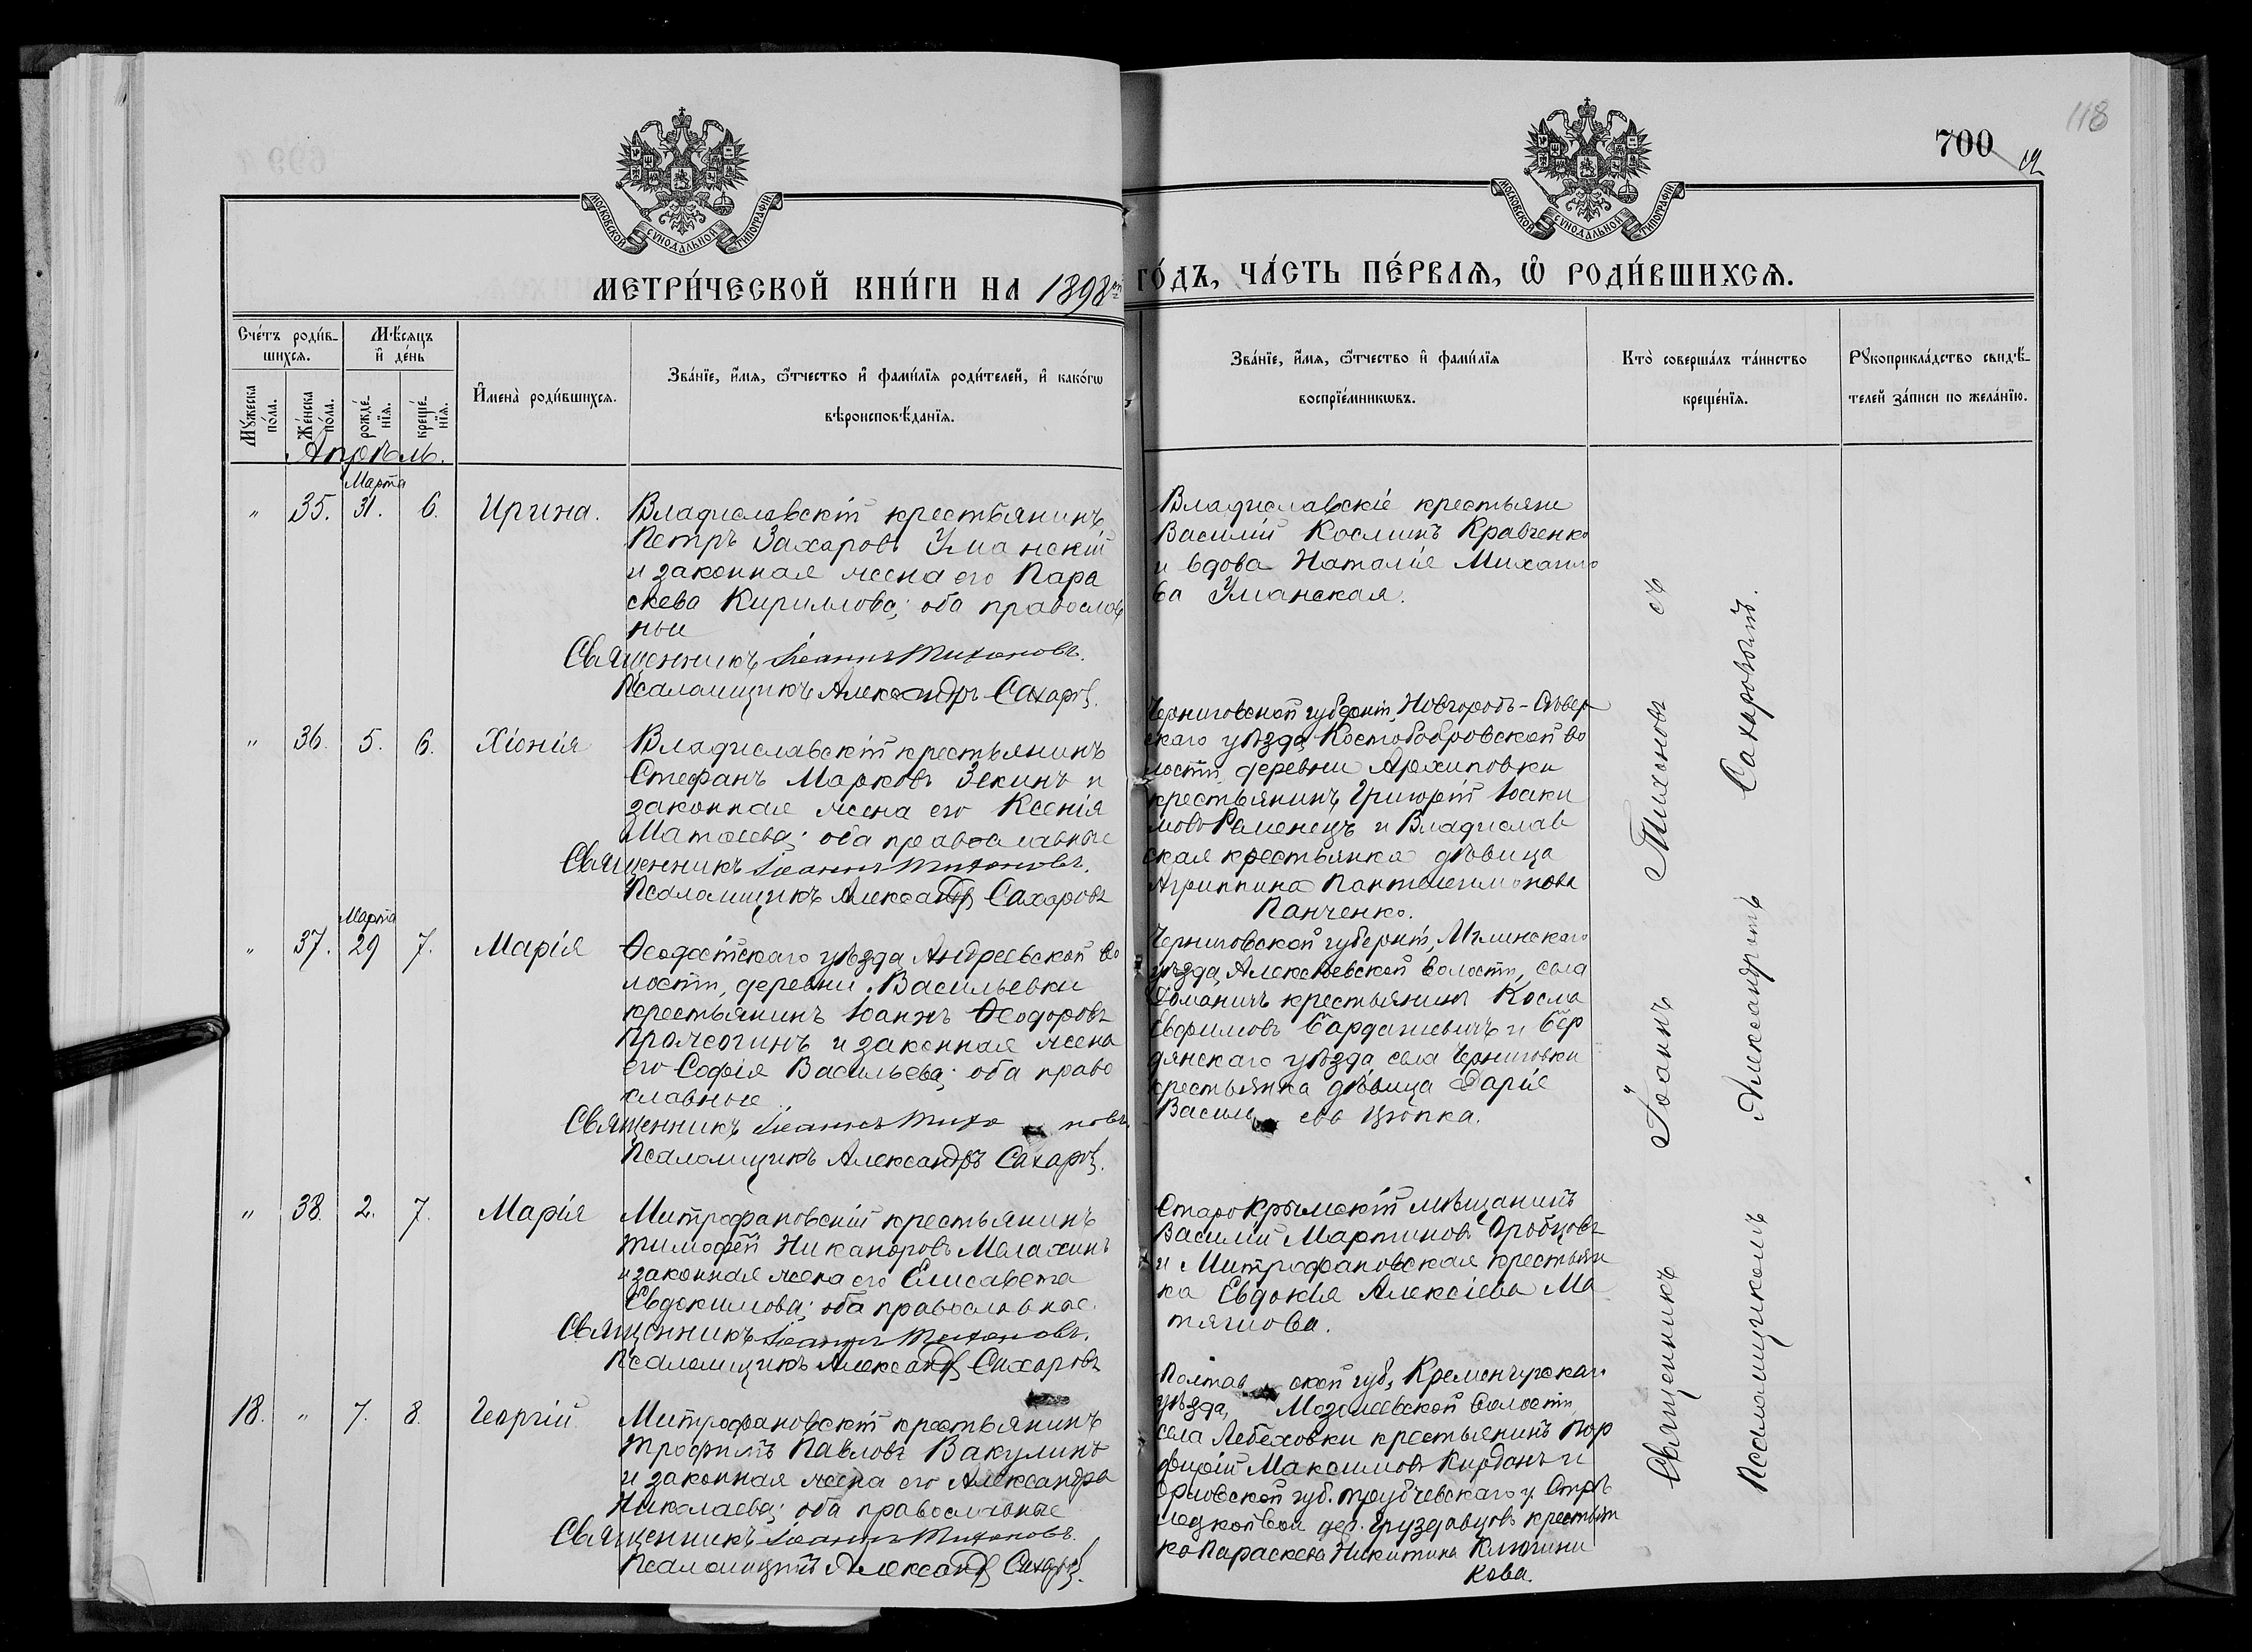 118
700
МОСКОВСКОЙ СѴНОДАЛЬНОЙ ТИПОГРАФІИ
МОСКОВСКОЙ СѴНОДАЛЬНОЙ ТИПОГРАФІИ
МЕТРИ́ЧЕСКОЙ КНИ́ГИ НА 1898й ГО́ДЪ, ЧА́СТЬ ПЕ́РВАѦ, Ѡ҆ РОДИ́ВШИХСѦ.
Сче́тъ роди́в-
шихсѧ.
Мѣ́сѧцъ
и҆ де́нь
Мꙋ́жеска по́ла.
Же́нска по́ла.
рожде́-нїѧ.
креще́-нїѧ.
И҆мена̀ роди́вшихсѧ.
Зва́нїе, и҆́мѧ, ѻ҆́тчество и҆ фами́лїѧ роди́телей, и҆ како́гѡ
вѣроисповѣ́данїѧ.
Зва́нїе, и҆́мѧ, ѻ҆́тчество и҆ фами́лїѧ
воспрїе́мникѡвъ.
Кто̀ соверша́лъ та́инство
креще́нїѧ.
Рꙋкоприкла́дство свидѣ́-
телей за́писи по жела́нїю.
Апрѣль.
Марта
" 35. 31. 6. Ирина.
Владиславскій крестьянинъ
Петръ Захаровъ Уманскій
и законная жена его Пара
скева Кириллова; оба православ
ные
Священникъ Іоаннъ Тихоновъ.
Псаломщикъ Александръ Сахаровъ.
Владиславскіе крестьяне
Василій Косминъ Кравченко
и вдова Наталія Михайло
ва Уманская.
" 36. 5. 6. Хіонія
Владиславскій крестьянинъ
Стефанъ Марковъ Зекинъ и
законная жена его Ксенія
Матѳеева; оба православные
Священникъ Іоаннъ Тихоновъ.
Псаломщикъ Александръ Сахаровъ
Черниговской губерніи, Новгородъ-Сѣвер
скаго уѣзда, Костобобровской во
лости, деревни Архиповки
крестьянинъ Григорій Іоаки
мовъ Роменецъ и Владислав
ская крестьянка дѣвица
Агриппина Пантелеимонова
Панченко.
Марта
" 37. 29 7. Марія
Ѳеодосійскаго уѣзда Андреевской во
лости, деревни Васильевки
крестьянинъ Іоаннъ Ѳеодоровъ
Прожогинъ и законная жена
его Софія Васильева; оба право
славные
Священникъ Іоаннъ Тихоновъ.
Псаломщикъ Александръ Сахаровъ.
Черниговской губерніи, Мглинскаго
уѣзда, Алексѣевской волости, села
Романичъ крестьянинъ Косма
Евфимовъ Бардашевичъ и Бер
дянскаго уѣзда, села Черниговки
крестьянка дѣвица Дарія
Васильева Цюпка.
" 38. 2. 7. Марія
Митрофановскій крестьянинъ
Тимофей Никаноровъ Малахинъ
и законная жена его Елисавета
Евдокимова; оба православные.
Священникъ Іоаннъ Тихоновъ.
Псаломщикъ Александръ Сахаровъ
Старокрымскій мѣщанинъ
Василій Мартиновъ Дробцовъ
и Митрофановская крестьян
ка Евдокія Алексіева Ма
тяшова.
18. " 7. 8. Георгій
Митрофановскій крестьянинъ
Трофимъ Павловъ Вакулинъ
и законная жена его Александра
Николаева; оба православные
Священникъ Іоаннъ Тихоновъ.
Псаломщикъ Александръ Сахаровъ.
Полтавской губ, Кременчугскаго
уѣзда, волости,
села Лебеховки крестьянинъ Пор
фирій Максимовъ Кирданъ и
Орловской губ. Трубчевскаго у.
вол дер. Груздовцовъ крестьян
ка Параскева Никитина Ключни
кова.
Священникъ Іоаннъ Тихоновъ съ
Псаломщикомъ Александромъ Сахаровымъ.